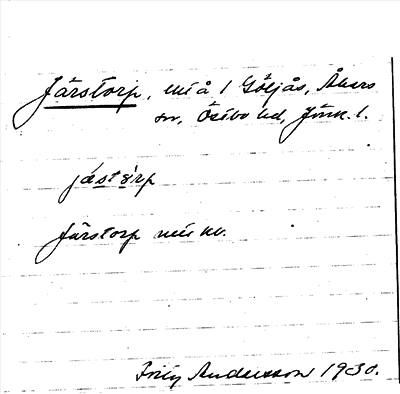 Järstorp, lht å 1 Göljås, Åkers
sn, Östbo hd, Jönk. l.
jästorp
Järstorp
Andersson 1930.